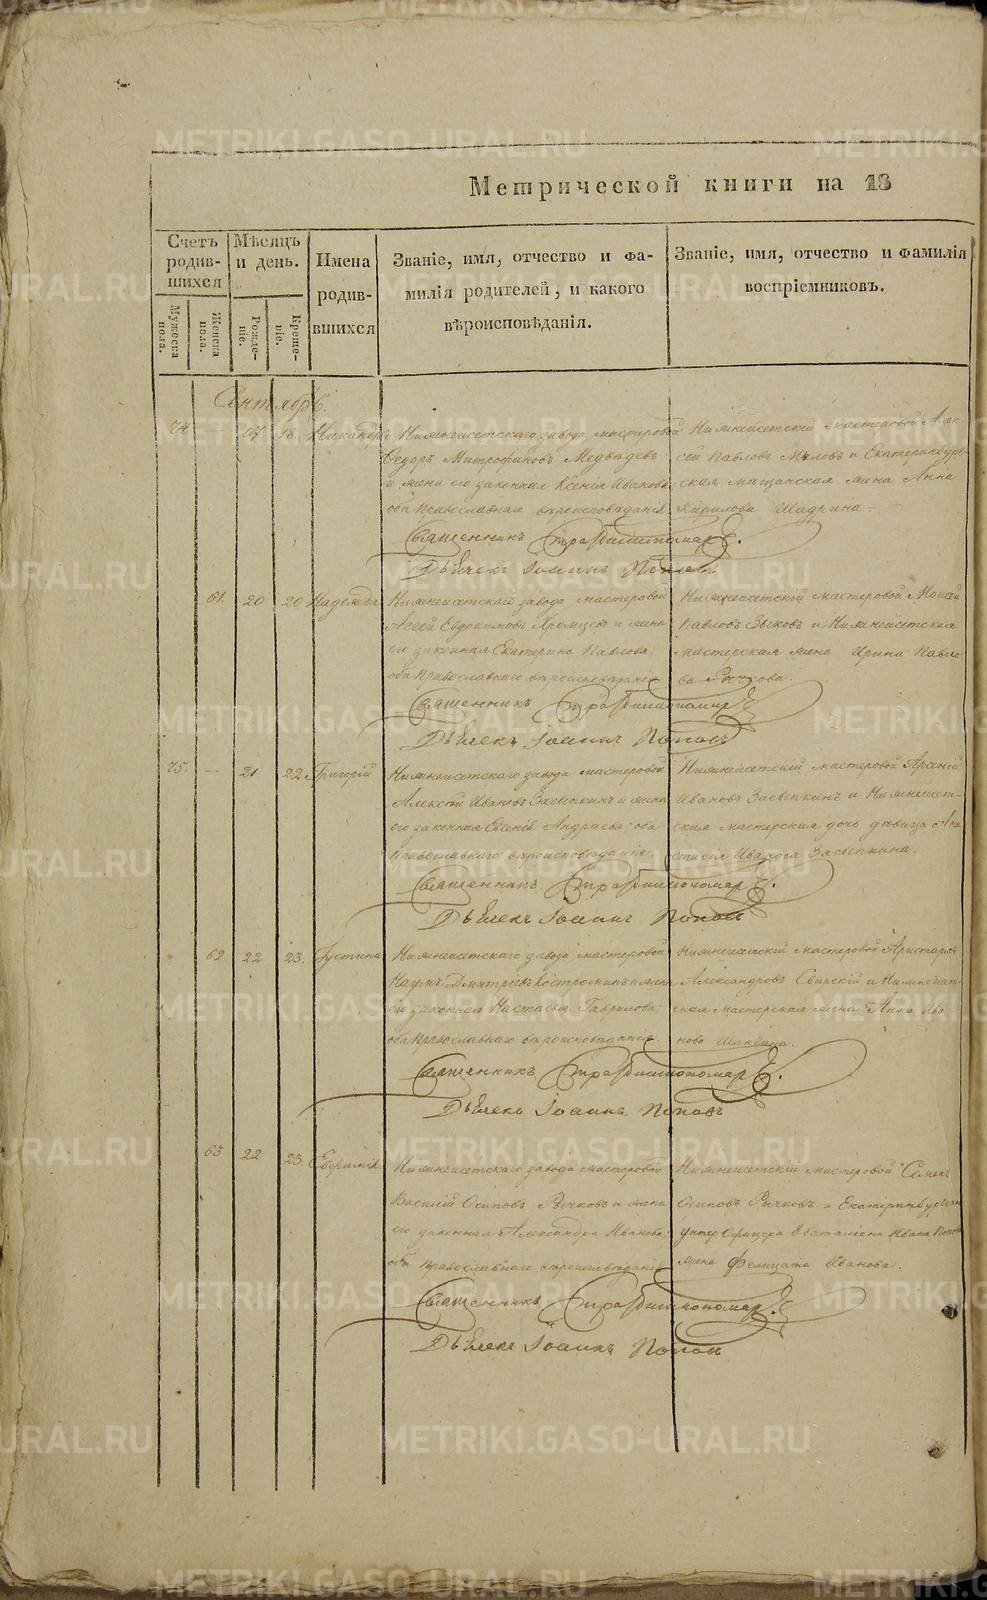 Метрической книги на 18
Счетъ родив-шихся
Мѣсяцъ и день.
Имена родив-вшихся
Званіе, имя, отчество и фа-
милія родителей, и какого
вѣроисповѣданія.
Званіе, имя, отчество и фамилія
воспріемниковъ.
Мужеска пола.
Женска пола.
Рожде-ніе.
Креще-ніе.
Сентябрь.
74 17 18. Никандръ
Нижнеисетскаго завода мастеровой
Федоръ Митрофановъ Медвѣдевъ
и жена его законная Ксенія Иванова
оба православнаго вѣроисповѣданія
Нижнеисетскій мастеровой Алек-
сей Павловъ и Екатеринбург-
ская мѣщанская жена Анна
Кирилова Шадрина.
Священникъ
Дьячекъ Іоаннъ Поповъ
61. 20 20 Надежда
Нижнеисетскаго завода мастеровой
Евдокимовъ и жена
его законная Екатерина Павлова
оба православнаго вѣроисповѣданія
Нижнеисетскій мастеровой Моисей
Павловъ Зыковъ и Нижнеисетская
мастерская жена Ирина Павло-
ва Рычкова.
Священникъ
Дьячекъ Іоаннъ Поповъ
75. — 21 22 Григорій
Нижнеисетскаго завода мастеровой
Алексѣй Ивановъ Засыпкинъ и жена
его законная Евгенія Андреева; оба
православнаго вѣроисповѣданія.
Нижнеисетскій мастеровой Арсеній
Ивановъ Засыпкинъ и Нижнеисет-
ская мастерская дочь дѣвица Ана-
стасія Иванова Засыпкина.
Священникъ
Дьячекъ Іоаннъ Поповъ
62 22 23. Іустина
Нижнеисетскаго завода мастеровой
Наумъ Дмитріевъ Костроминъ и жена
его законная Настасья Гаврилова
оба православнаго вѣроисповѣданія
Нижнеисетскій мастеровой Аристархъ
Александровъ Свирскій и Нижнеисет-
ская мастерская жена Анна Ива-
нова
Священникъ
Дьячекъ Іоаннъ Поповъ
63 22 23. Евфимія
Нижнеисетскаго завода мастеровой
Василій Осиповъ Рычковъ и жена
его законная Александра Иванова
оба православнаго вѣроисповѣданія
Нижнеисетскій мастеровой Семенъ
Осиповъ Рычковъ и Екатеринбургскаго
унтеръ офицера баталіона Ивана Попова
жена Фелицата Иванова.
Священникъ
Дьячекъ Іоаннъ Поповъ
METRIKI.GASO-URAL.RU